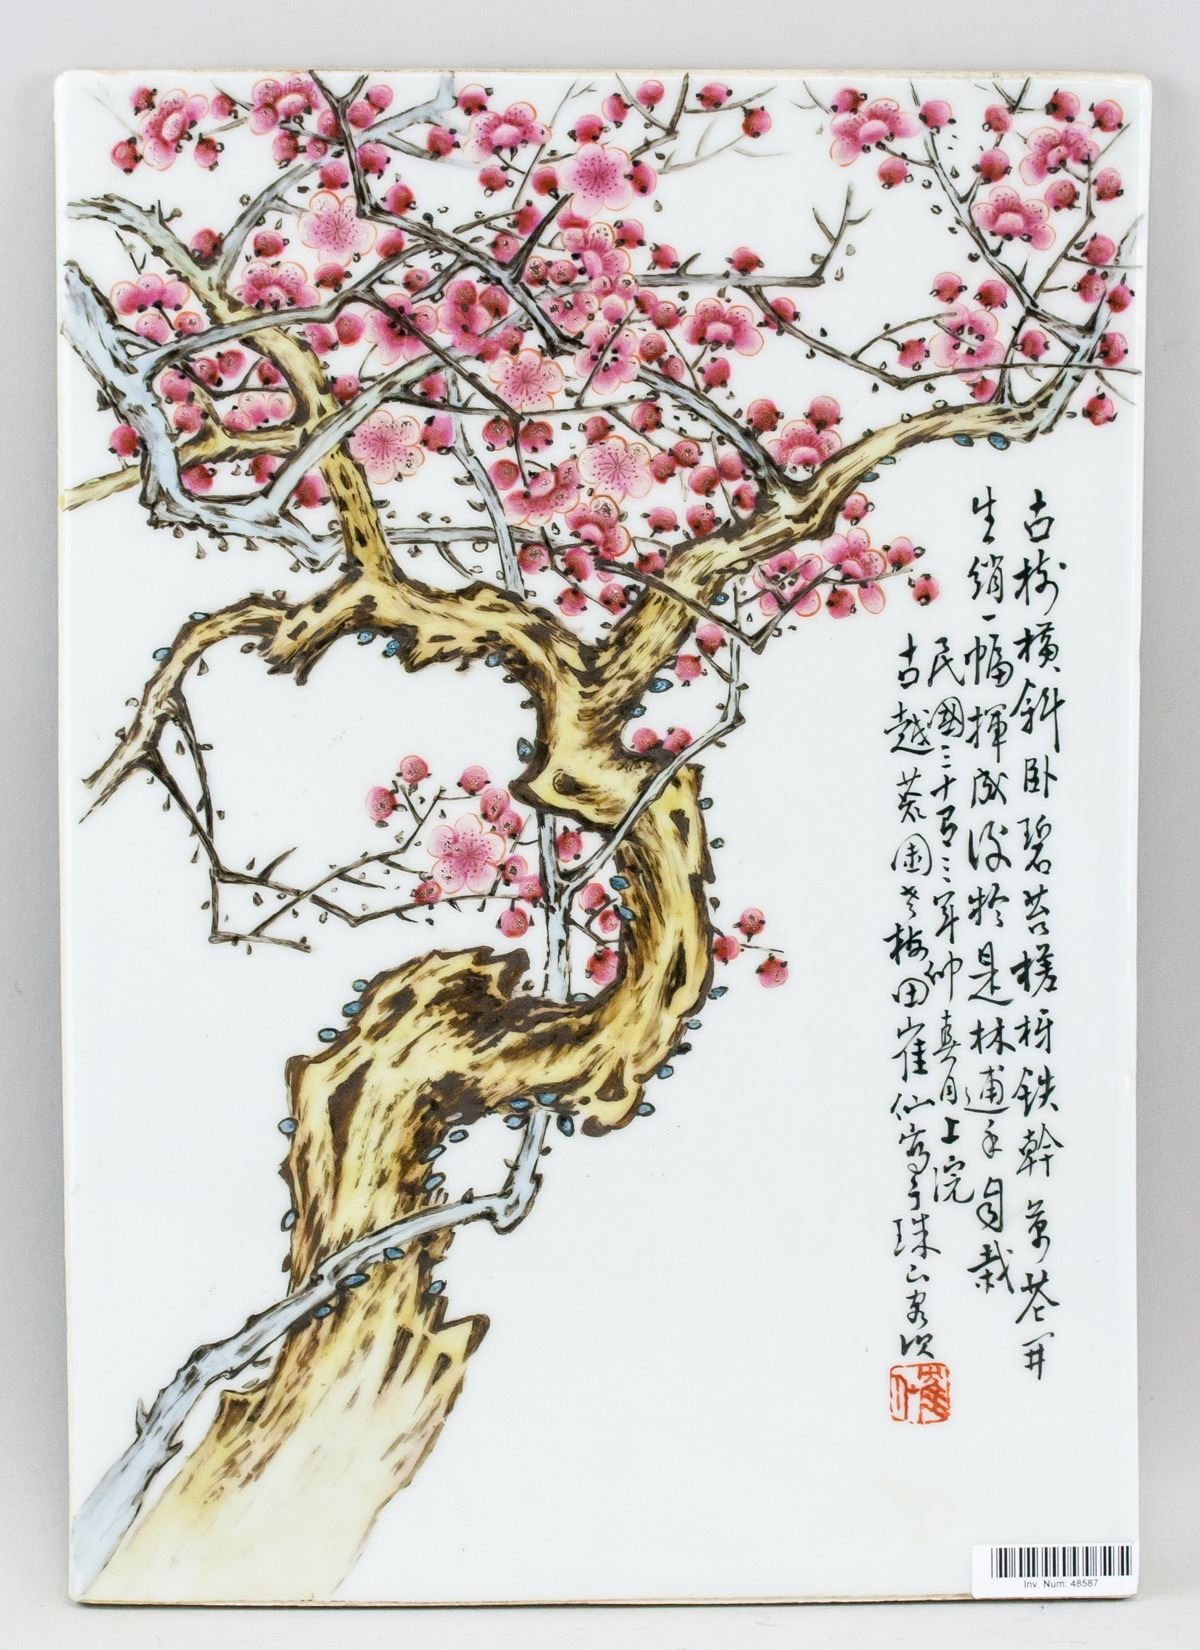 古樹橫斜卧碧苔槎枒鉄幹萬花開
生綃一幅揮成後於是林逋手自栽
民國三十有三年仲真月上浣
古越茶園老梅田崔仙寫于珠山客次
Inv. Num: 48587